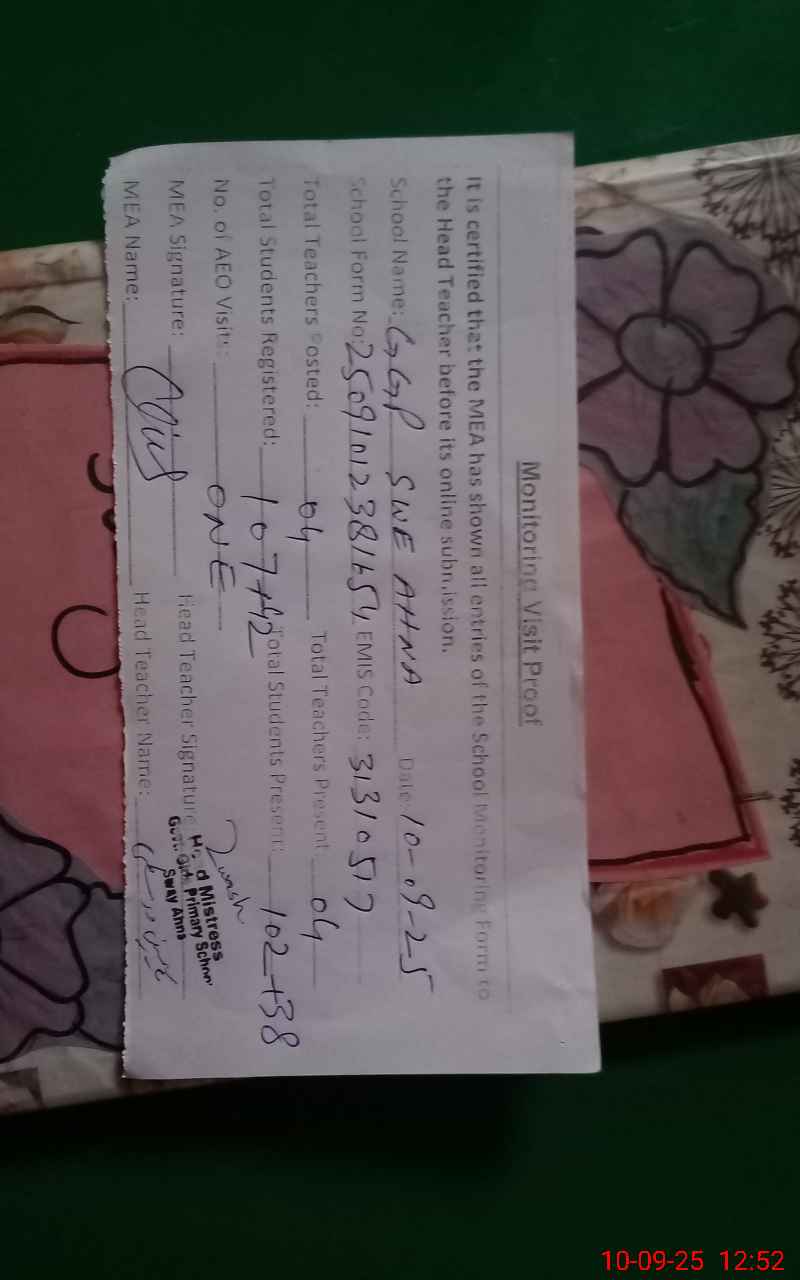 Monitoring Visit Proof
It is certified that the MEA has shown all entries of the School Monitoring Form to
the Head Teacher before its online submission.
School Name: GGP SWE AHNA Date: 10-09-25
School Form No: EMIS Code: 31310517
Total Teachers Posted: 04 Total Teachers Present: 04
Total Students Registered: 107+42 Total Students Present: 102+38
No. of AEO Visits: ONE
MEA Signature: Head Teacher Signature
Head Mistress
Govt. Girls Primary School
Sway Ahna
MEA Name: Head Teacher Name:
10-09-25 12:52